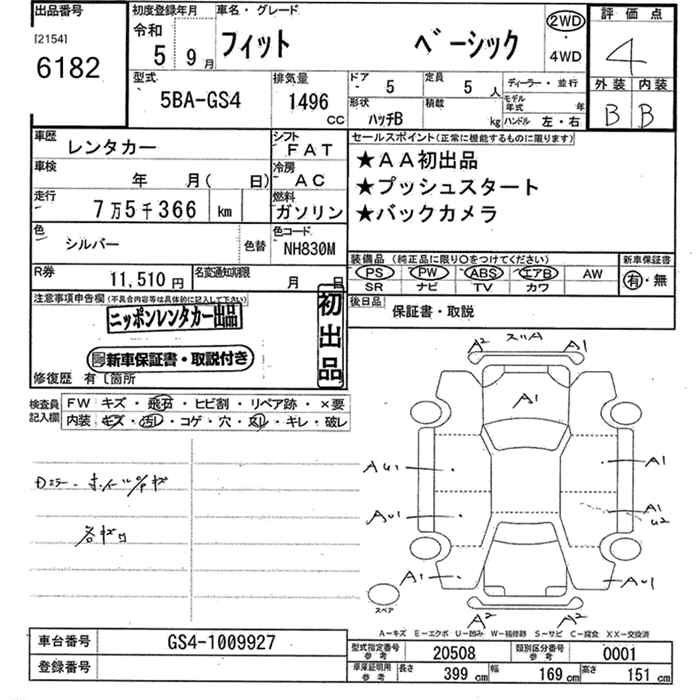 出品番号
[2154]
6182
初度登録年月
令和
5 9月
車名・グレード
フィット ベーシック
2WD
・
4WD
評価点
4
外装 内装
B B
型式
5BA-GS4
排気量
1496
CC
ドア
5
定員
5 人
形状
ハッチB
積載
kg
ディーラー・並行
モデル年式 年
ハンドル 左・右
車歴
レンタカー
シフト
FAT
車検
年 月( 日)
冷房
AC
走行
7万5千366 km
燃料
ガソリン
色
シルバー
色替
色コード
NH830M
R券
11,510円
名変通知期限
月 日
セールスポイント(正常に機能するものに限ります)
★AA初出品
★プッシュスタート
★バックカメラ
装備品 (純正品に限り○をつけてください)
PS PW ABS エアB AW
SR ナビ TV カワ
新車保証書
有・無
後日品
保証書・取説
注意事項申告欄(不具合内容等は具体的に記入して下さい)
ニッポンレンタカー出品
新車保証書・取説付き
初出品
修復歴 有〔箇所
検査員記入欄
FW キズ・飛石・ヒビ割・リペア跡・×要
内装・キズ・汚レ・コゲ・穴・スレ・キレ・破レ
各キロ
A2 スリA A1
A1
AU1 A1
AU1 A1
U2
A1 AU1
A2 A2
スペア
A-キズ E-エクボ U-凹み W-補修跡 S-サビ C-腐食 XX-交換済
車台番号
GS4-1009927
登録番号
型式指定番号参考
20508
類別区分番号参考
0001
車庫証明用参考
長さ 399 cm 幅 169 cm 高さ 151 cm